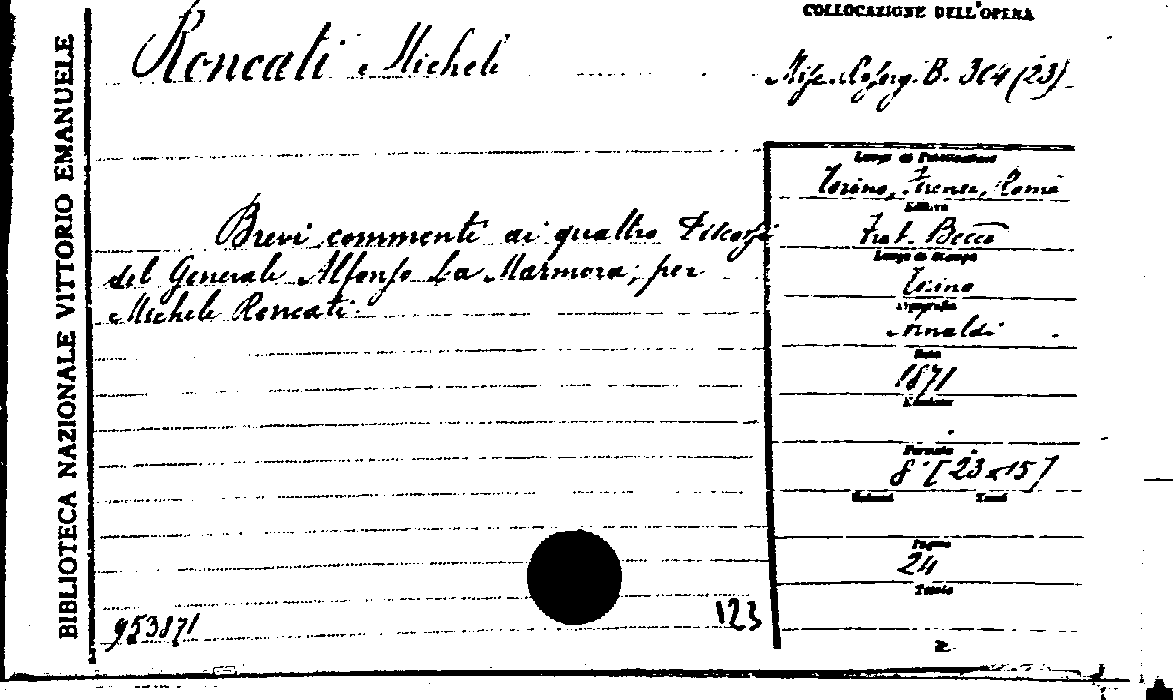 BIBLIOTECA NAZIONALE VITTORIO EMANUELE
COLLOCAZIONE DELL'OPERA
Roncati Michele
B. 304 (23)
Brevi commenti ai quattro
del Generale Alfonso La Marmora, per
Michele Roncati.
Luogo di Pubblicazione
Torino, Firenze, Roma
Editore
Frat. Bocca
Luogo di Stampa
Torino
Tipografia
Data
1871
Formato
8° [23x15]
Volumi Tomi
Pagine
24
Tavole
953871
123